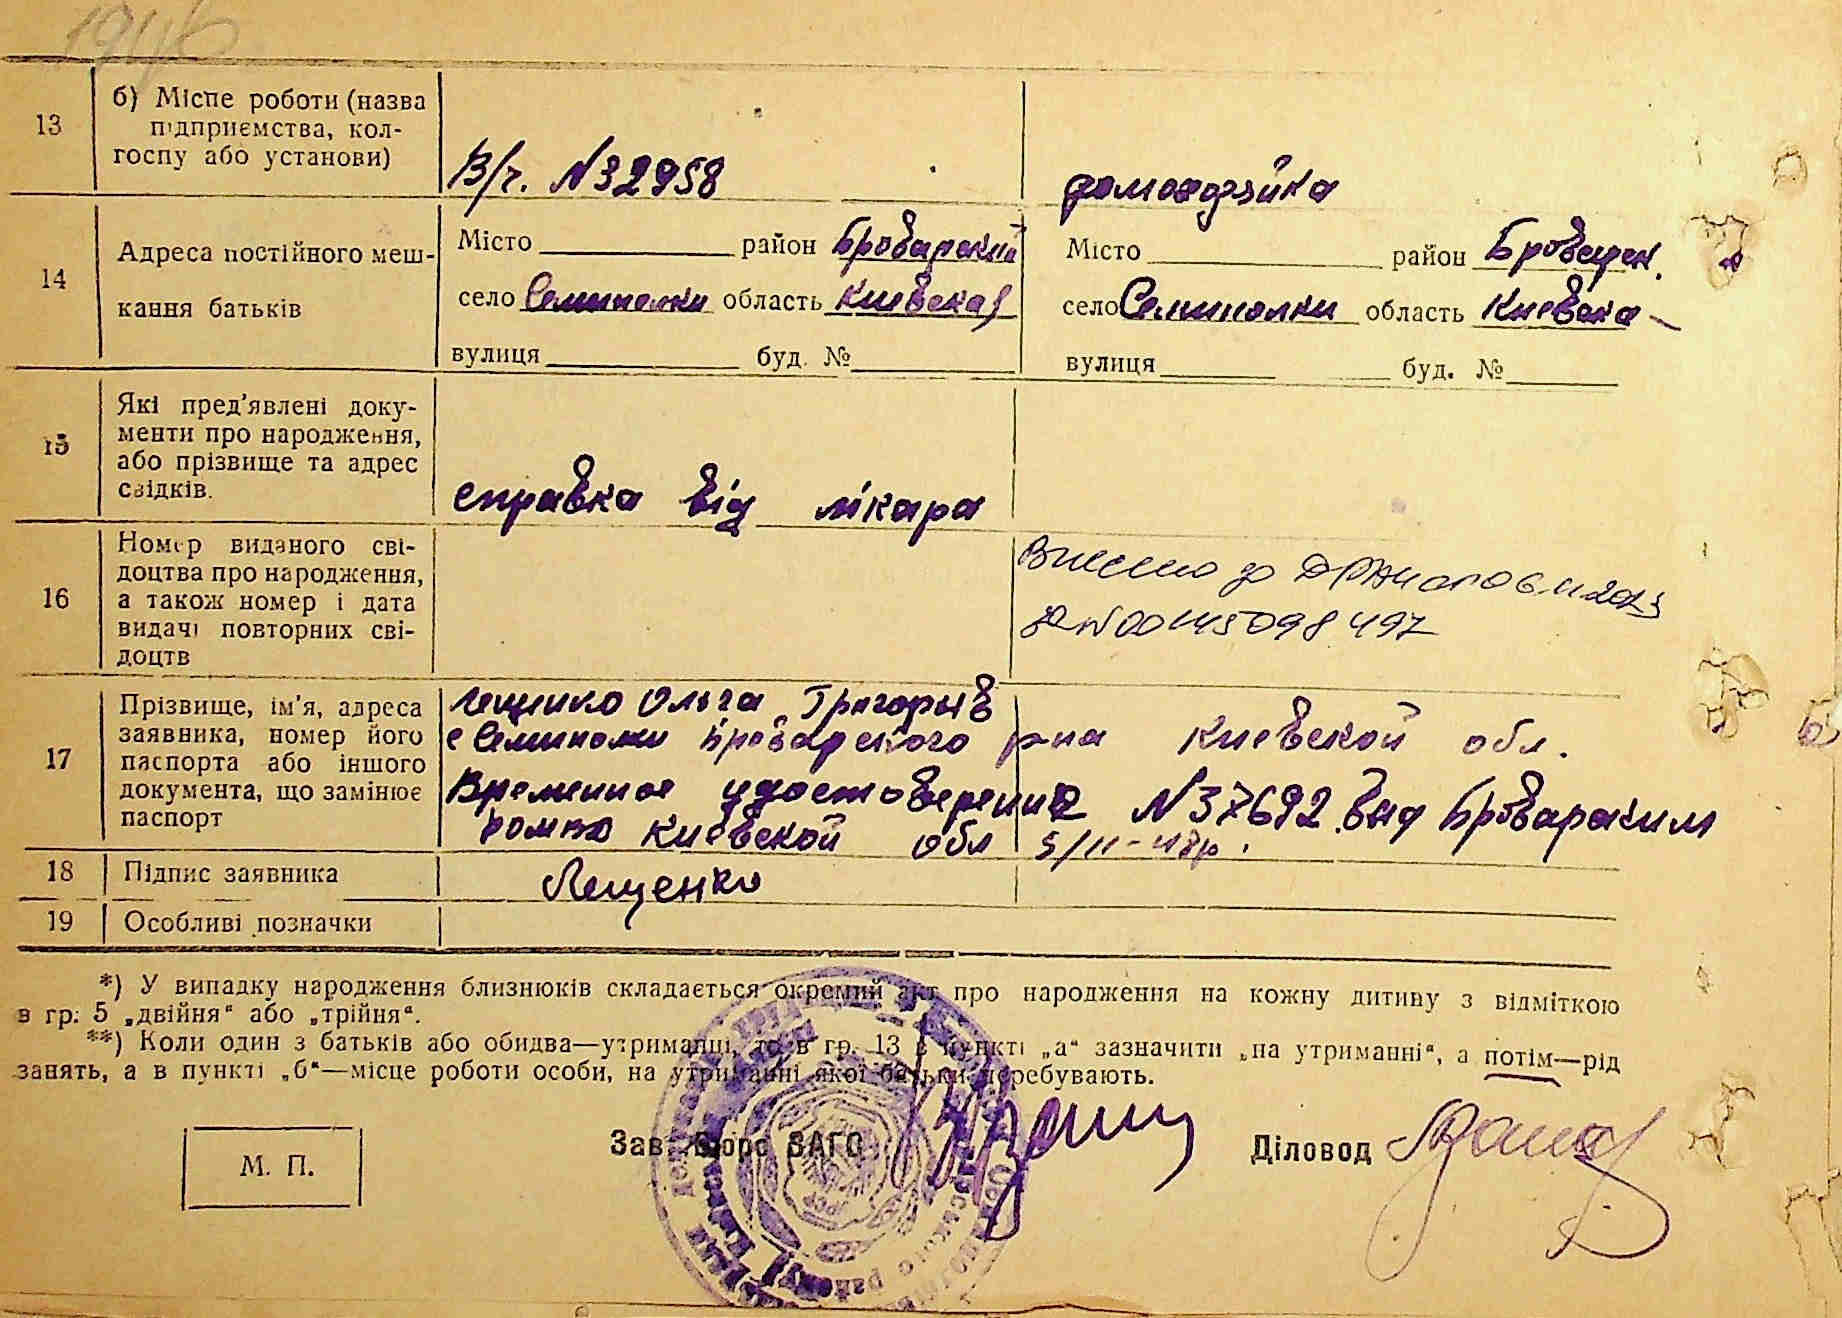 1946
13 б) Місце роботи (назва
підприємства, кол-
госпу або установи)
В/ч. N32958 домохозяйка
14 Адреса постійного меш-
кання батьків
Місто район Броварский Місто район
село Семиполки область Киевская село Семиполки область Киевска
вулиця буд. № вулиця буд. №
15 Які пред'явлені доку-
менти про народження,
або прізвище та адрес
свідків.
справка від лікара
16 Номер виданого сві-
доцтва про народження,
а також номер і дата
видачі повторних сві-
доцтв
Внесено до
N00145098497
17 Прізвище, ім'я, адреса
заявника, номер його
паспорта або іншого
документа, що замінює
паспорт
Лещенко Ольга Григорьев
с Семиполки Броварского р-на Киевской обл.
Временное удостоверение N37692 выд Броварским
Киевской обл 5/II-48р.
18 Підпис заявника Лещенко
19 Особливі позначки
*) У випадку народження близнюків складається окремий акт про народження на кожну дитину з відміткою
в гр. 5 „двійня“ або „трійня“.
**) Коли один з батьків або обидва—утриманці, то в гр. 13 в пункті „а“ зазначити „на утриманні“, а потім—рід
занять, а в пункті „б“—місце роботи особи, на утриманні якої батьки перебувають.
М. П. Зав. Бюро ЗАГС Діловод